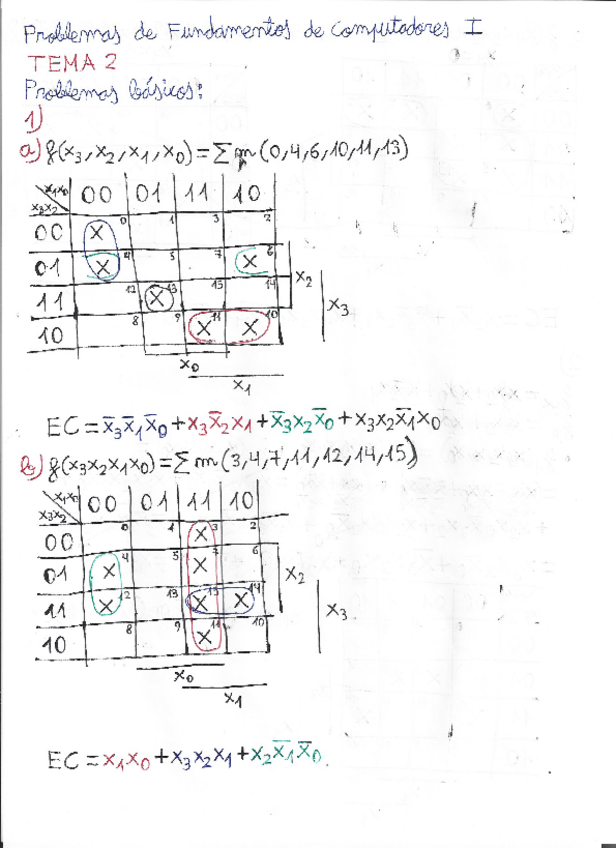 Problemas de Fundamentos de Computadores I
TEMA 2
Problemas básicos:
1)
a) f(x₃, x₂, x₁, x₀) = ∑ m (0,4,6,10,11,13)
x₁x₀ 00 01 11 10
x₃x₂
00 X 0 1 3 2
01 X 4 5 7 X 6
x₂
11 12 X 13 15 14
x₃
10 8 9 X 11 X 10
x₀
x₁
EC = x̅₃x̅₁x̅₀ + x₃x̅₂x₁ + x̅₃x₂x̅₀ + x₃x₂x̅₁x₀
b) f(x₃x₂x₁x₀) = ∑ m (3,4,7,11,12,14,15)
x₁x₀ 00 01 11 10
x₃x₂
00 0 1 X 3 2
01 X 4 5 X 7 6
x₂
11 X 12 13 X 15 X 14
x₃
10 8 9 X 11 10
x₀
x₁
EC = x₁x₀ + x₃x₂x₁ + x₂x̅₁x̅₀.